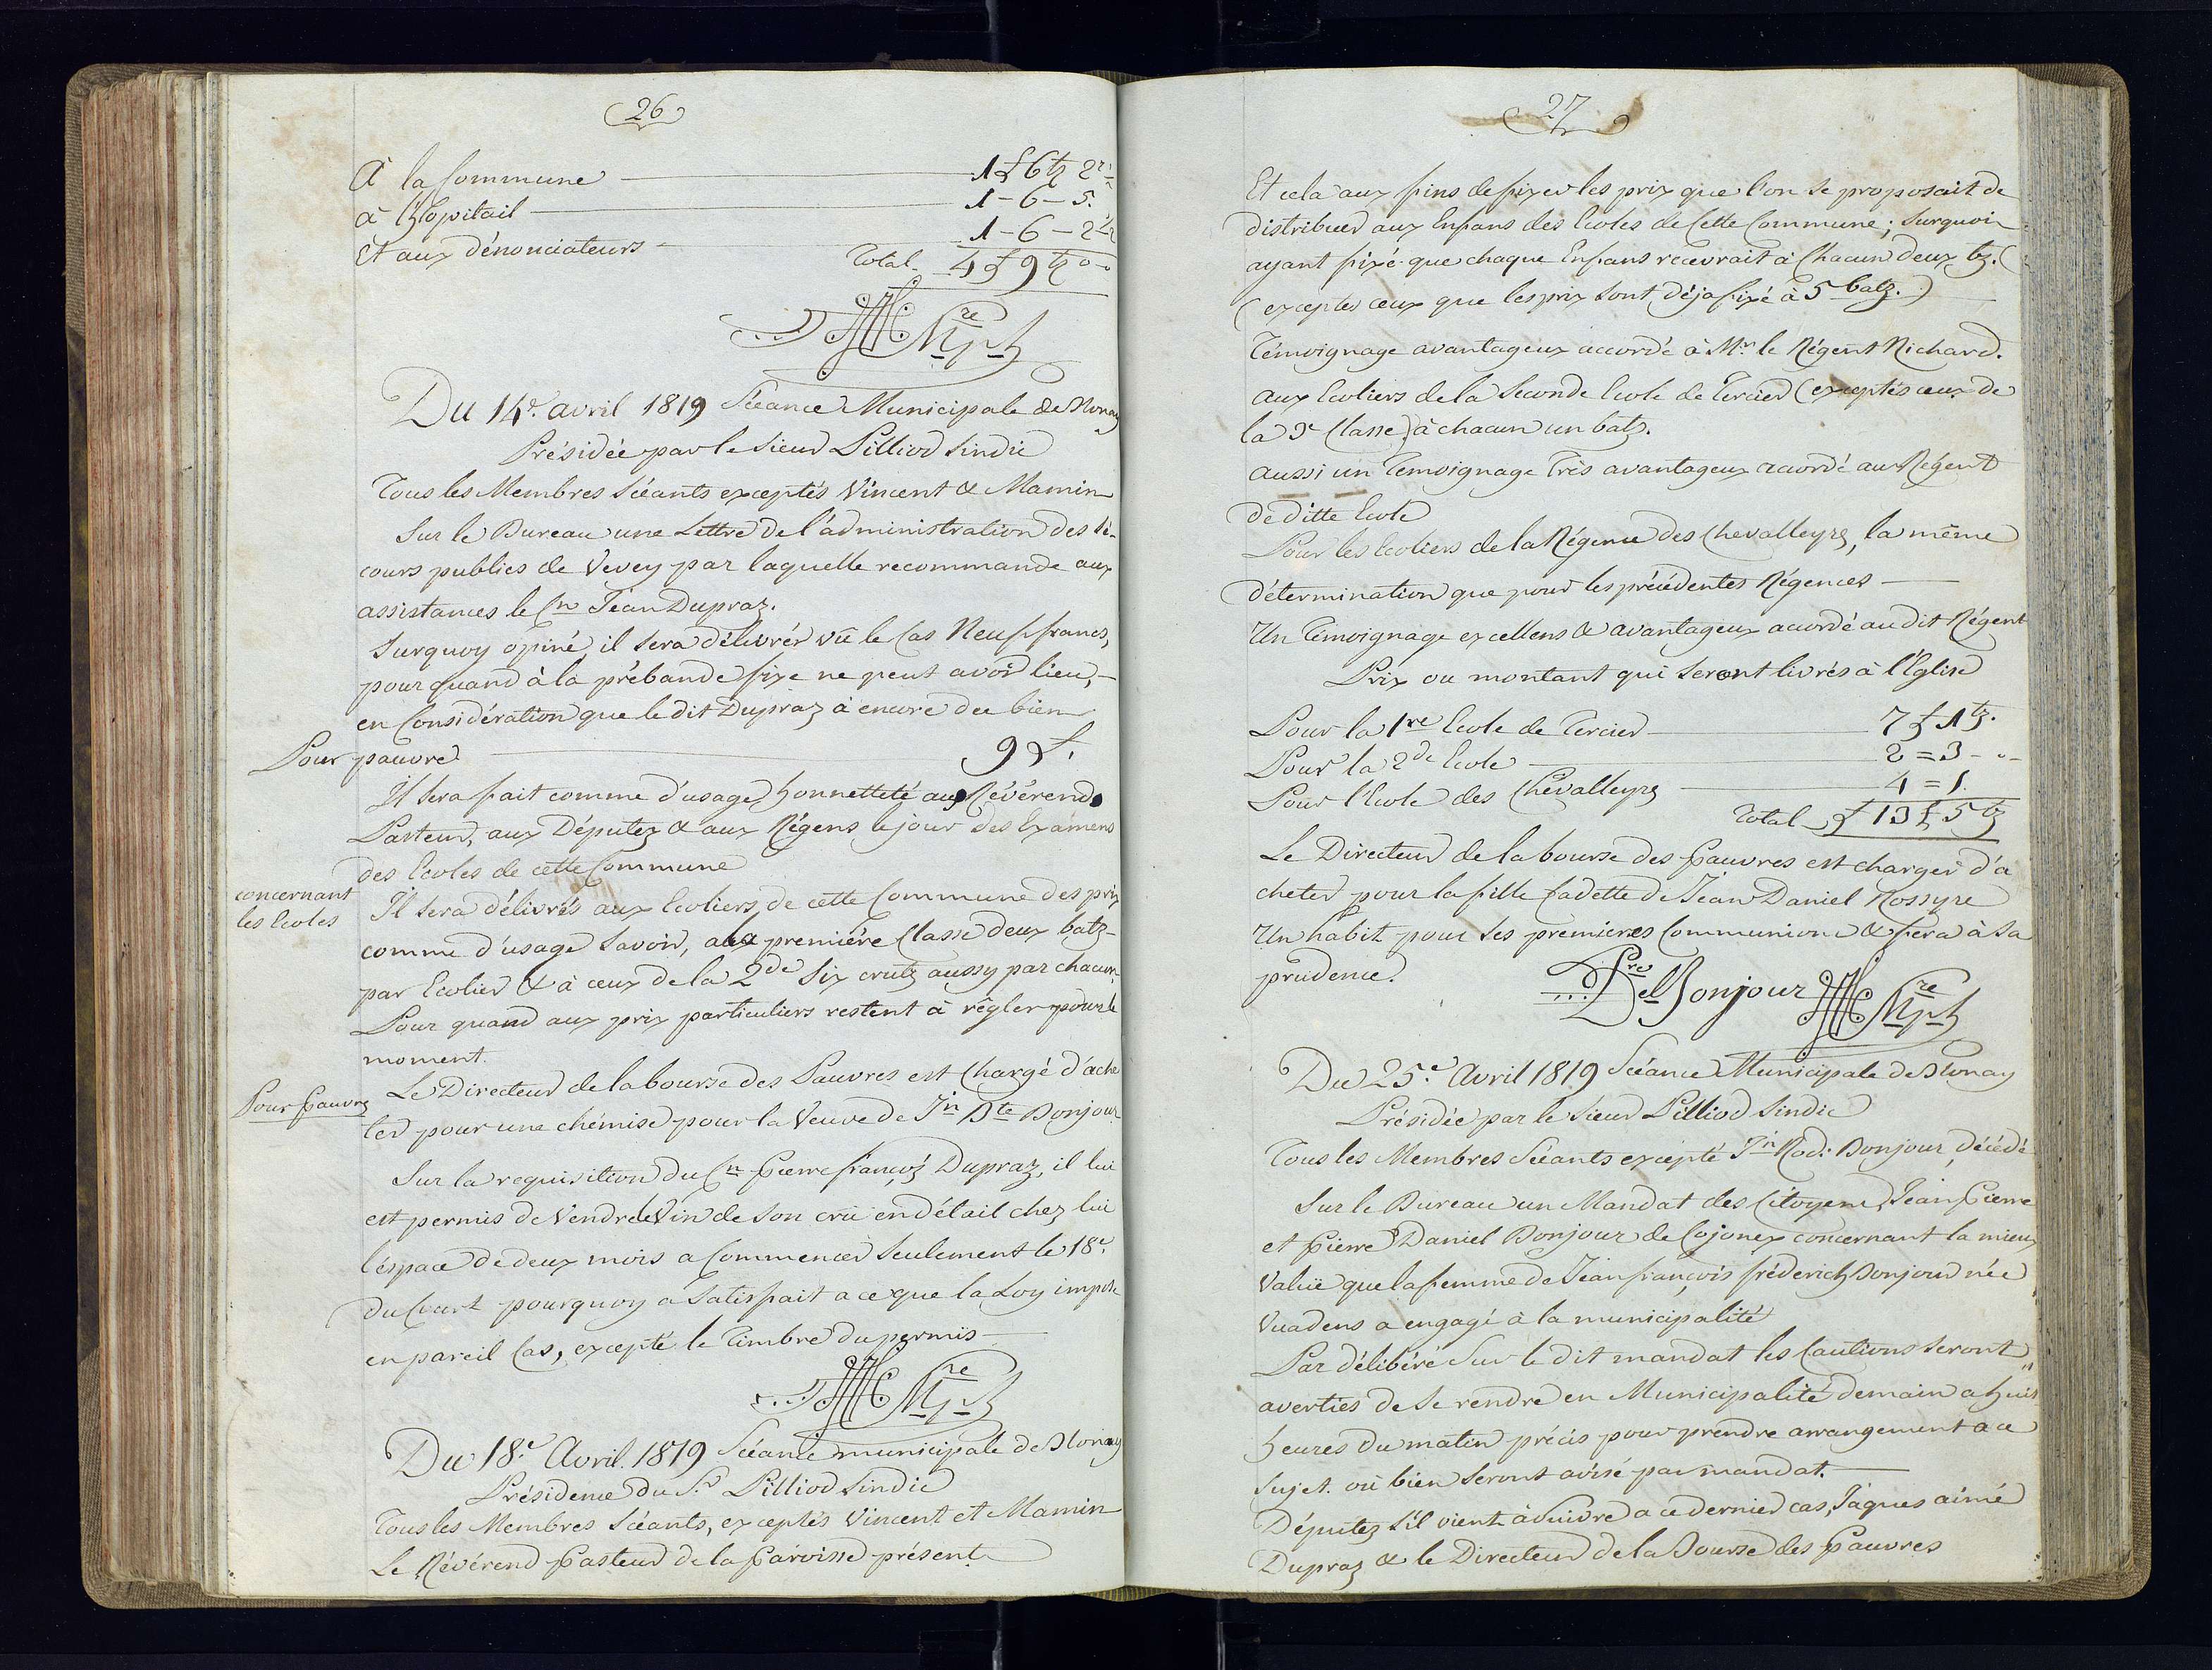 26
A la Commune 1£ 6tz 2r½
à Lhopitail 1-6-5.
Et aux dénonciateurs 1-6-2½
Total 4£ 9tz
Du 14e. avril 1819 Séeance Municipale de Blonay
Présidée par le Sieur Pilliod Sindic
Tous les Membres Séeants exceptés Vincent & Mamin
Sur le Bureau une Lettre de l'administration des Sé-
cours publics de Vevey par laquelle recommande aux
assistances le Cn Jean Dupraz.
Surquoy opiné, il sera délivrér vû le Cas Neuf francs,
pour quand à la prébande fixe ne peut avoir lieu,-
en Considération que le dit Dupraz à encore du bien
Pour pauvre 9£.
Il sera fait comme d'usage honnetteté au Révérend
Pasteur, aux Députez & aux Régens le jour des Examens
des Ecoles de cette Commune
concernant
les Ecoles
Il sera délivrés aux Ecoliers de cette Commune des prix
comme d'usage Savoir, a la premiére Classe deux batz-
par Ecolier & à ceux de la 2de Six crutz aussy par chacun
Pour quand aux prix particuliers restent à régler pour le
moment.
Pour pauvre
Le Directeur de la bourse des Pauvres est Chargé d'ache
ter pour une chémise pour la Veuve de Jn Bte Bonjour
Sur la requisition du Cn Pierre françois Dupraz, il lui
est permis de Vendre le Vin de son crû en détail chez lui
l'éspace de deux mois a Commencer Seulement le 18e.
du Court pourquoy a Satisfait a ce que la Loy impose
en pareil Cas, excepté le Timbre du permis
Du 18e. Avril. 1819 Séeance municipale de Blonay
Présidence du Sr. Pilliod Sindic
Tous les Membres Séeants, exceptés Vincent et Mamin
Le Révérend Pasteur de la Paroisse présent
27
Et cela aux fins de fixer les prix que l'on se proposait de
distribuer aux Enfans des Ecoles de Cette Commune; Surquoi
ayant fixé que chaque Enfans recevrait à Chacun deux bz.
(exceptés ceux que les prix sont déja fixé à 5 batz.)
Témoignage avantageux accordé à Mr. le Régent Richard.
Aux Ecoliers de la Seconde Ecole de Tercier (exceptés ceux de
la 3e Classe) à chacun un batz.
aussi un Temoignage Très avantageux acordé au Régent
de ditte Ecole
Pour les Ecoliers de la Régence des Chevalleyres, la même
détermination que pour les précédentes Régences
Un Temoignage excellens & avantageux acordé au dit Régent
Prix ou montant qui seront livrés à l'Eglise
Pour la 1re Ecole de Tercier 7£ 1tz.
Pour la 2de Ecole 2=3-
Pour l'Ecole des Chevalleyres 4=1.
Total £ 13£ 5tz
Le Directeur de la bourse des Pauvres est charger d'a
cheter pour la fille Cadette de Jean Daniel Rossyre
Un habit pour ses premieres Communion & fera à sa
prudence.
Bonjour
Du 25e. Avril 1819 Séeance Municipale de Blonay
Présidée par le Sieur Pilliod Sindic
Tous les Membres Séeants excepté Jn Rod: Bonjour, décédé
Sur le Bureau un Mandat des Citoyens, Jean Pierre
et Pierre Daniel Bonjour de Cojonex concernant la mieux
Value que la femme de Jean françois fréderich Bonjour née
Vuadens a engagé à la municipalité
Par délibéré Sur le dit mandat les Cautions seront
averties de se rendre en Municipalité demain a huit
heures du matin précis pour prendre arrangement a ce
Sujet. ou bien Seront avisé par mandat.
Députez s'il vient à suivre a ce dernier cas, Jaques aimé
Dupraz & le Directeur de la Bourse des Pauvres